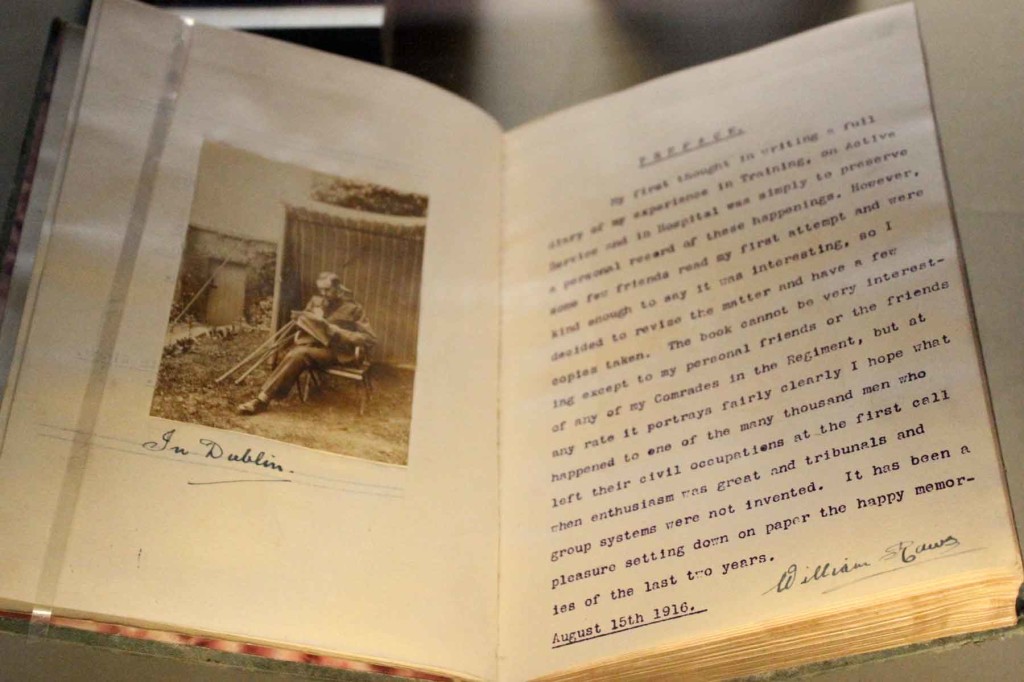 In Dublin.
PREFACE.
My first thought in writing a full
diary of my experience in Training, on Active
Service and in Hospital was simply to preserve
a personal record of these happenings. However,
some few friends read my first attempt and were
kind enough to say it was interesting, so I
decided to revise the matter and have a few
copies taken. The book cannot be very interest-
ing except to my personal friends or the friends
of any of my Comrades in the Regiment, but at
any rate it portrays fairly clearly I hope what
happened to one of the many thousand men who
left their civil occupations at the first call
when enthusiasm was great and tribunals and
group systems were not invented. It has been a
pleasure setting down on paper the happy memor-
ies of the last two years.
William
August 15th 1916.